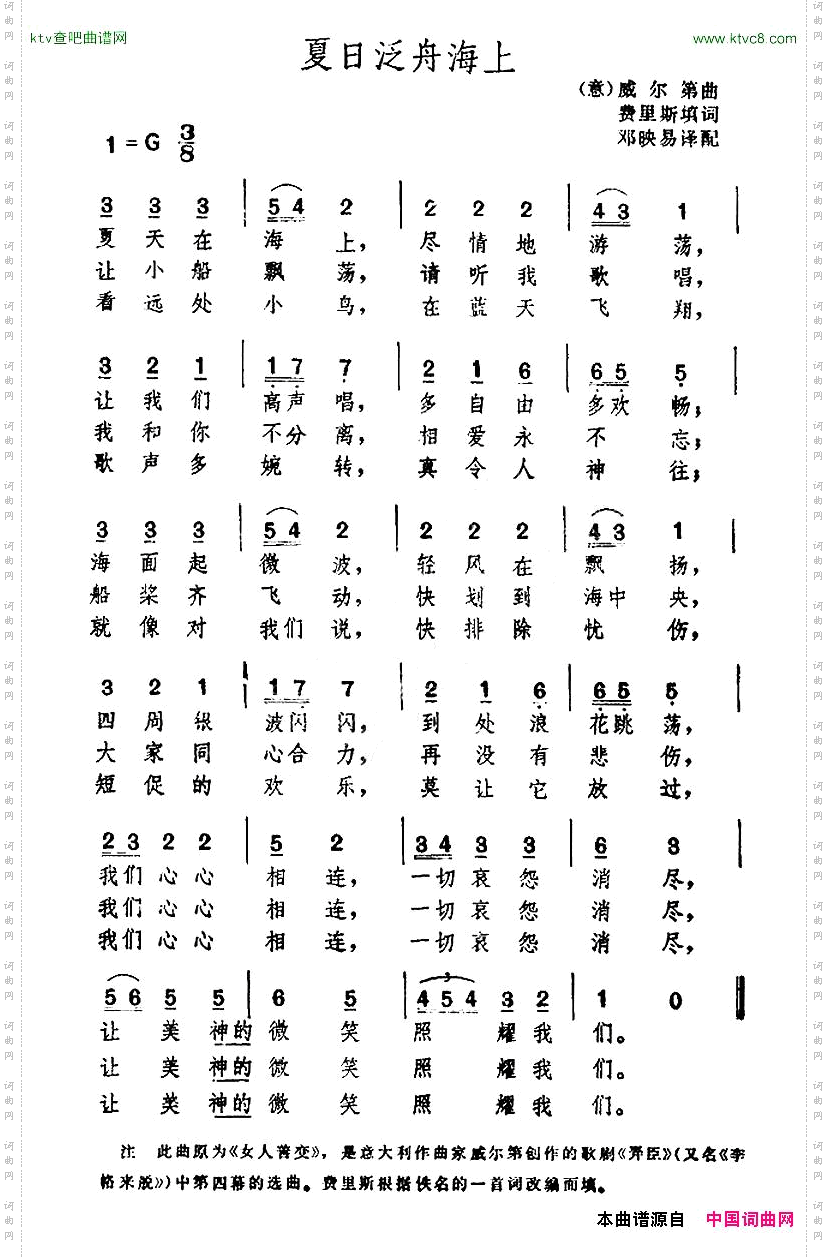 ktv查吧曲谱网
www.ktvc8.com
夏日泛舟海上
(意)威尔第曲
费里斯填词
邓映易译配
1=G 3/8
3 3 3 | 5 4 2 | 2 2 2 | 4 3 1 |
夏天在海上,尽情地游荡,
让小船飘荡,请听我歌唱,
看远处小鸟,在蓝天飞翔,
3 2 1 | 1 7 7 | 2 1 6 | 6 5 5 |
让我们高声唱,多自由多欢畅;
我和你不分离,相爱永不忘;
歌声多婉转,真令人神往;
3 3 3 | 5 4 2 | 2 2 2 | 4 3 1 |
海面起微波,轻风在飘扬,
船桨齐飞动,快划到海中央,
就像对我们说,快排除忧伤,
3 2 1 | 1 7 7 | 2 1 6 | 6 5 5 |
四周银波闪闪,到处浪花跳荡,
大家同心合力,再没有悲伤,
短促的欢乐,莫让它放过,
2 3 2 2 | 5 2 | 3 4 3 3 | 6 3 |
我们心心相连,一切哀怨消尽,
我们心心相连,一切哀怨消尽,
我们心心相连,一切哀怨消尽,
5 6 5 5 | 6 5 | 3 4 5 4 3 2 | 1 0 ‖
让美神的微笑照耀我们。
让美神的微笑照耀我们。
让美神的微笑照耀我们。
注 此曲原为《女人善变》,是意大利作曲家威尔第创作的歌剧《弄臣》(又名《李
格来脱》)中第四幕的选曲。费里斯根据佚名的一首词改编而填。
本曲谱源自 中国词曲网